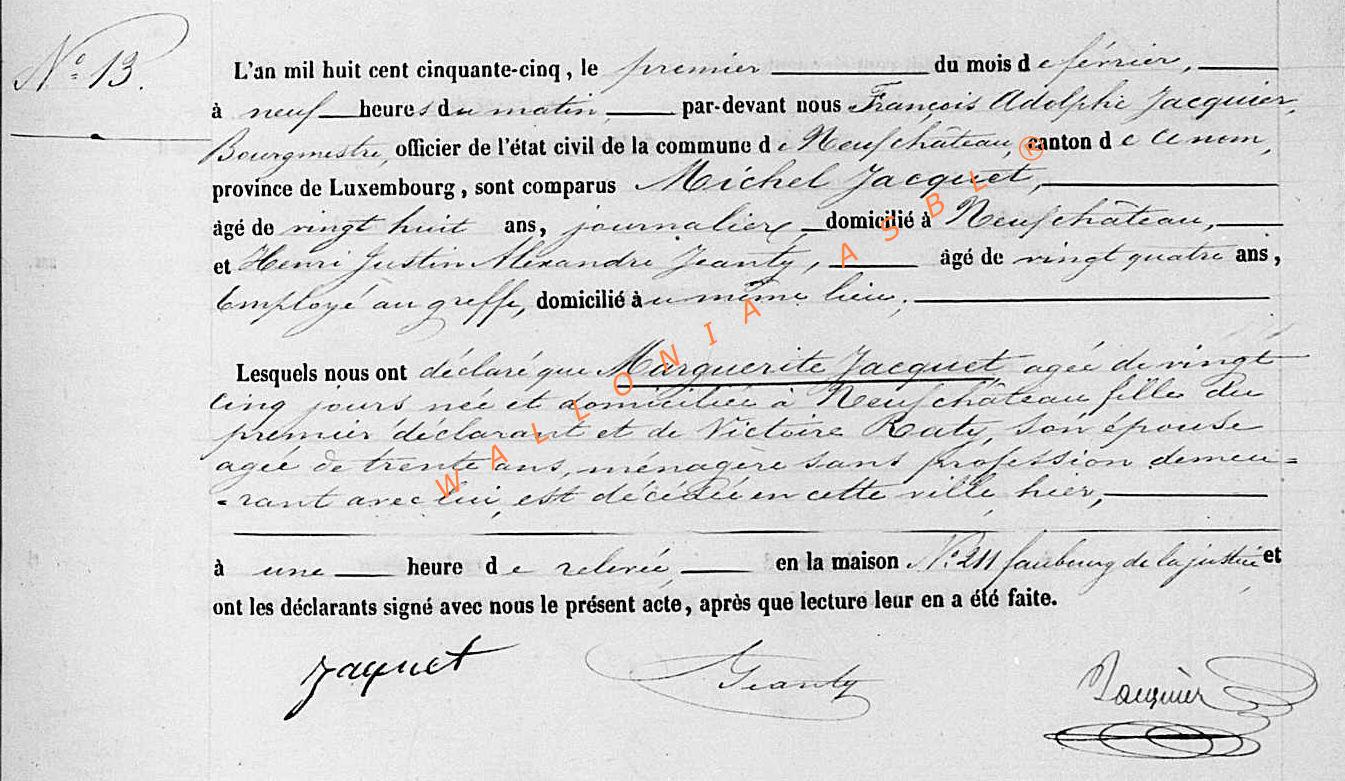 N° 13.
L'an mil huit cent cinquante-cinq, le premier du mois de février,
à neuf heures du matin, par-devant nous François Adolphe Jacquier,
Bourgmestre, officier de l'état civil de la commune de Neufchâteau, canton de ce nom,
province de Luxembourg, sont comparus Michel Jacquet,
âgé de vingt huit ans, journalier, domicilié à Neufchâteau,
et Henri Justin Alexandre Jeanty, âgé de vingt quatre ans,
Employé au greffe, domicilié au même lieu,
Lesquels nous ont déclaré que Marguerite Jacquet agée de vingt
cinq jours née et domiciliée à Neufchâteau fille du
premier déclarant et de Victoire Raty, son épouse
agée de trente ans, ménagère sans profession demeu=
=rant avec lui, est décédée en cette ville, hier,
à une heure de relevée, en la maison N° 211 faubourg de la justice et
ont les déclarants signé avec nous le présent acte, après que lecture leur en a été faite.
Jaquet Jeanty Jacquier
WALLONIA ASBL ®